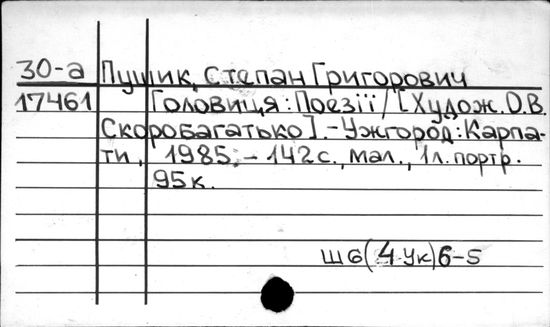 30-а Пушик, Степан Григорович
17461 Головиця: Поезії / [Худож. О.В.
Скоробагатько]. - Ужгород: Карпа-
ти, 1985. - 142 с., мал., 1 л. портр.
95к.
Ш6(4Ук)6-5